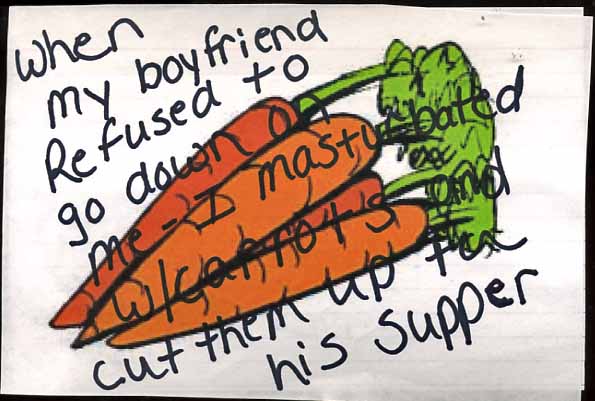 when
my boyfriend
Refused to
go down on
me - I masturbated
w/carrots and
cut them up
his supper